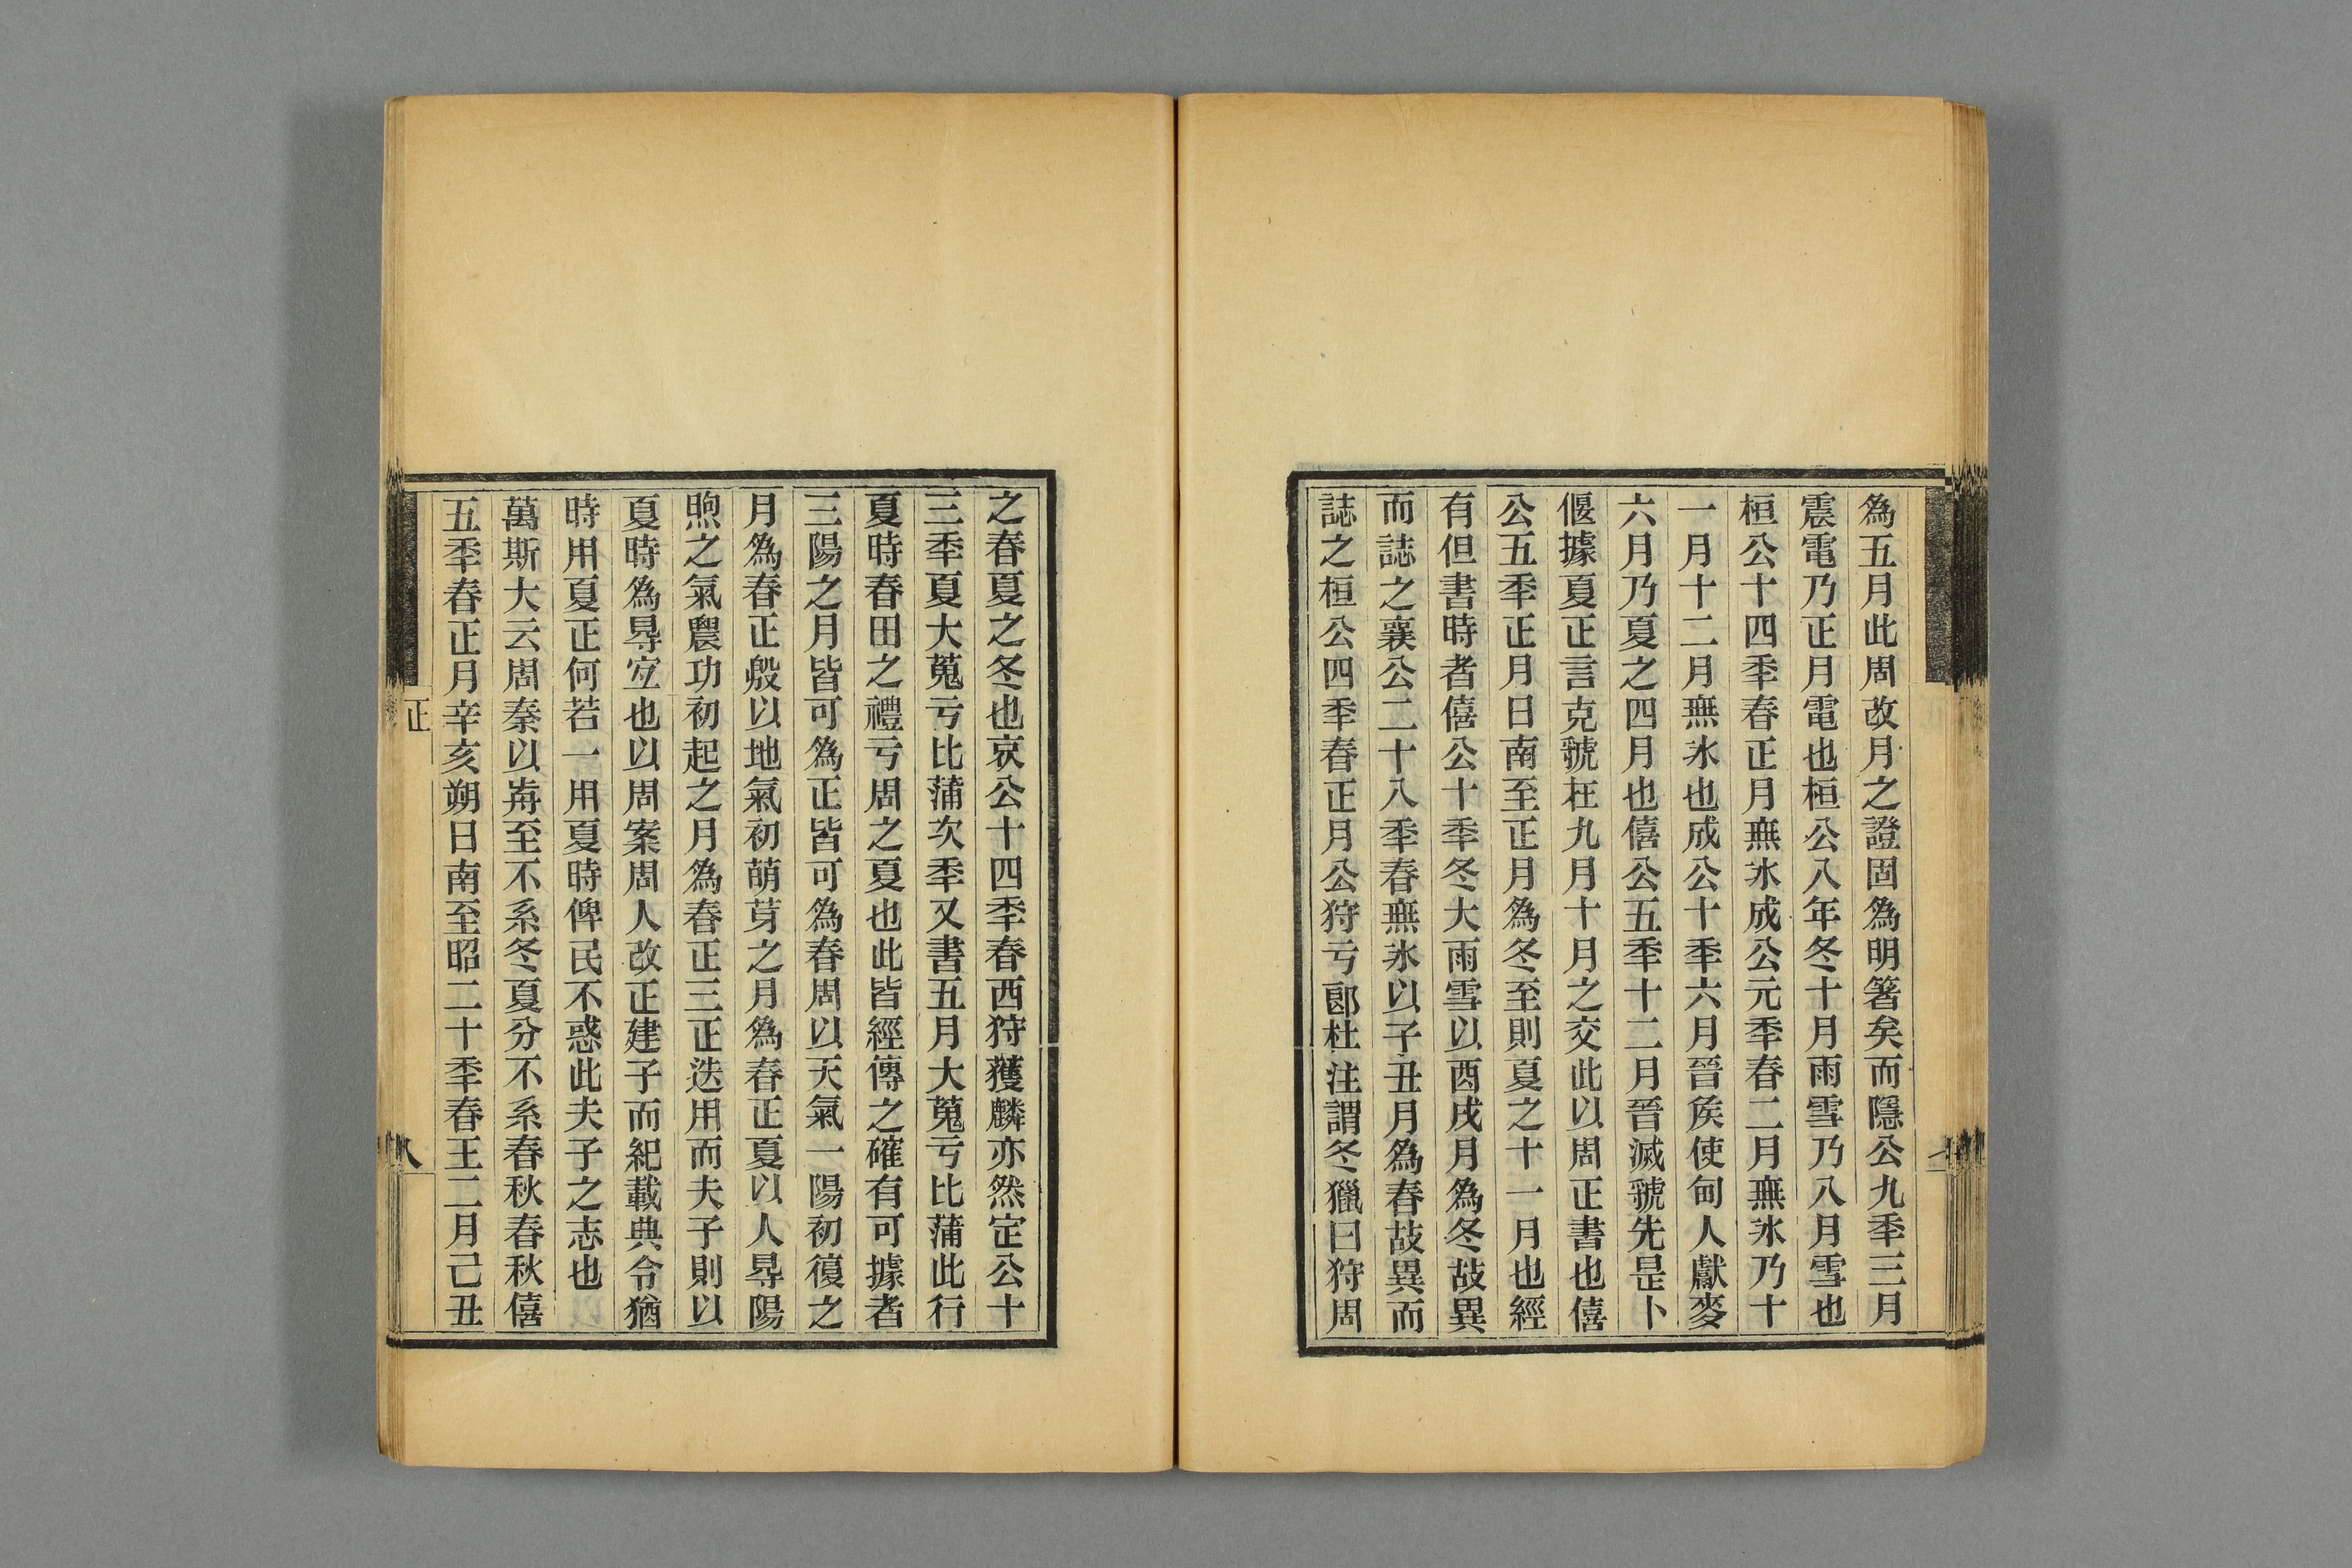 為五月此周改月之證固為明箸矣而隱公九秊三月
震電乃正月電也桓公八年冬十月雨雪乃八月雪也
桓公十四秊春正月無氷成公元秊春二月無氷乃十
一月十二月無氷也成公十秊六月晉矦使甸人獻麥
六月乃夏之四月也僖公五秊十二月晉滅虢先是卜
偃據夏正言克虢在九月十月之交此以周正書也僖
公五秊正月日南至正月為冬至則夏之十一月也經
有但書時者僖公十秊冬大雨雪以酉戌月為冬故異
而誌之襄公二十八秊春無氷以子丑月為春故異而
誌之桓公四秊春正月公狩亏郎杜注謂冬獵曰狩周
之春夏之冬也哀公十四秊春西狩獲麟亦然定公十
三秊夏大蒐亏比蒲次秊又書五月大蒐亏比蒲此行
夏時春田之禮亏周之夏也此皆經傳之確有可據者
三陽之月皆可為正皆可為春周以天氣一陽初復之
月為春正殷以地氣初萌芽之月為春正夏以人㝵陽
煦之氣農功初起之月為春正三正迭用而夫子則以
夏時為㝵宐也以周案周人改正建子而紀載典令猶
時用夏正何若一用夏時俾民不惑此夫子之志也
萬斯大云周秦以歬至不系冬夏分不系春秋春秋僖
五秊春正月辛亥朔日南至昭二十秊春王二月己丑
正
八